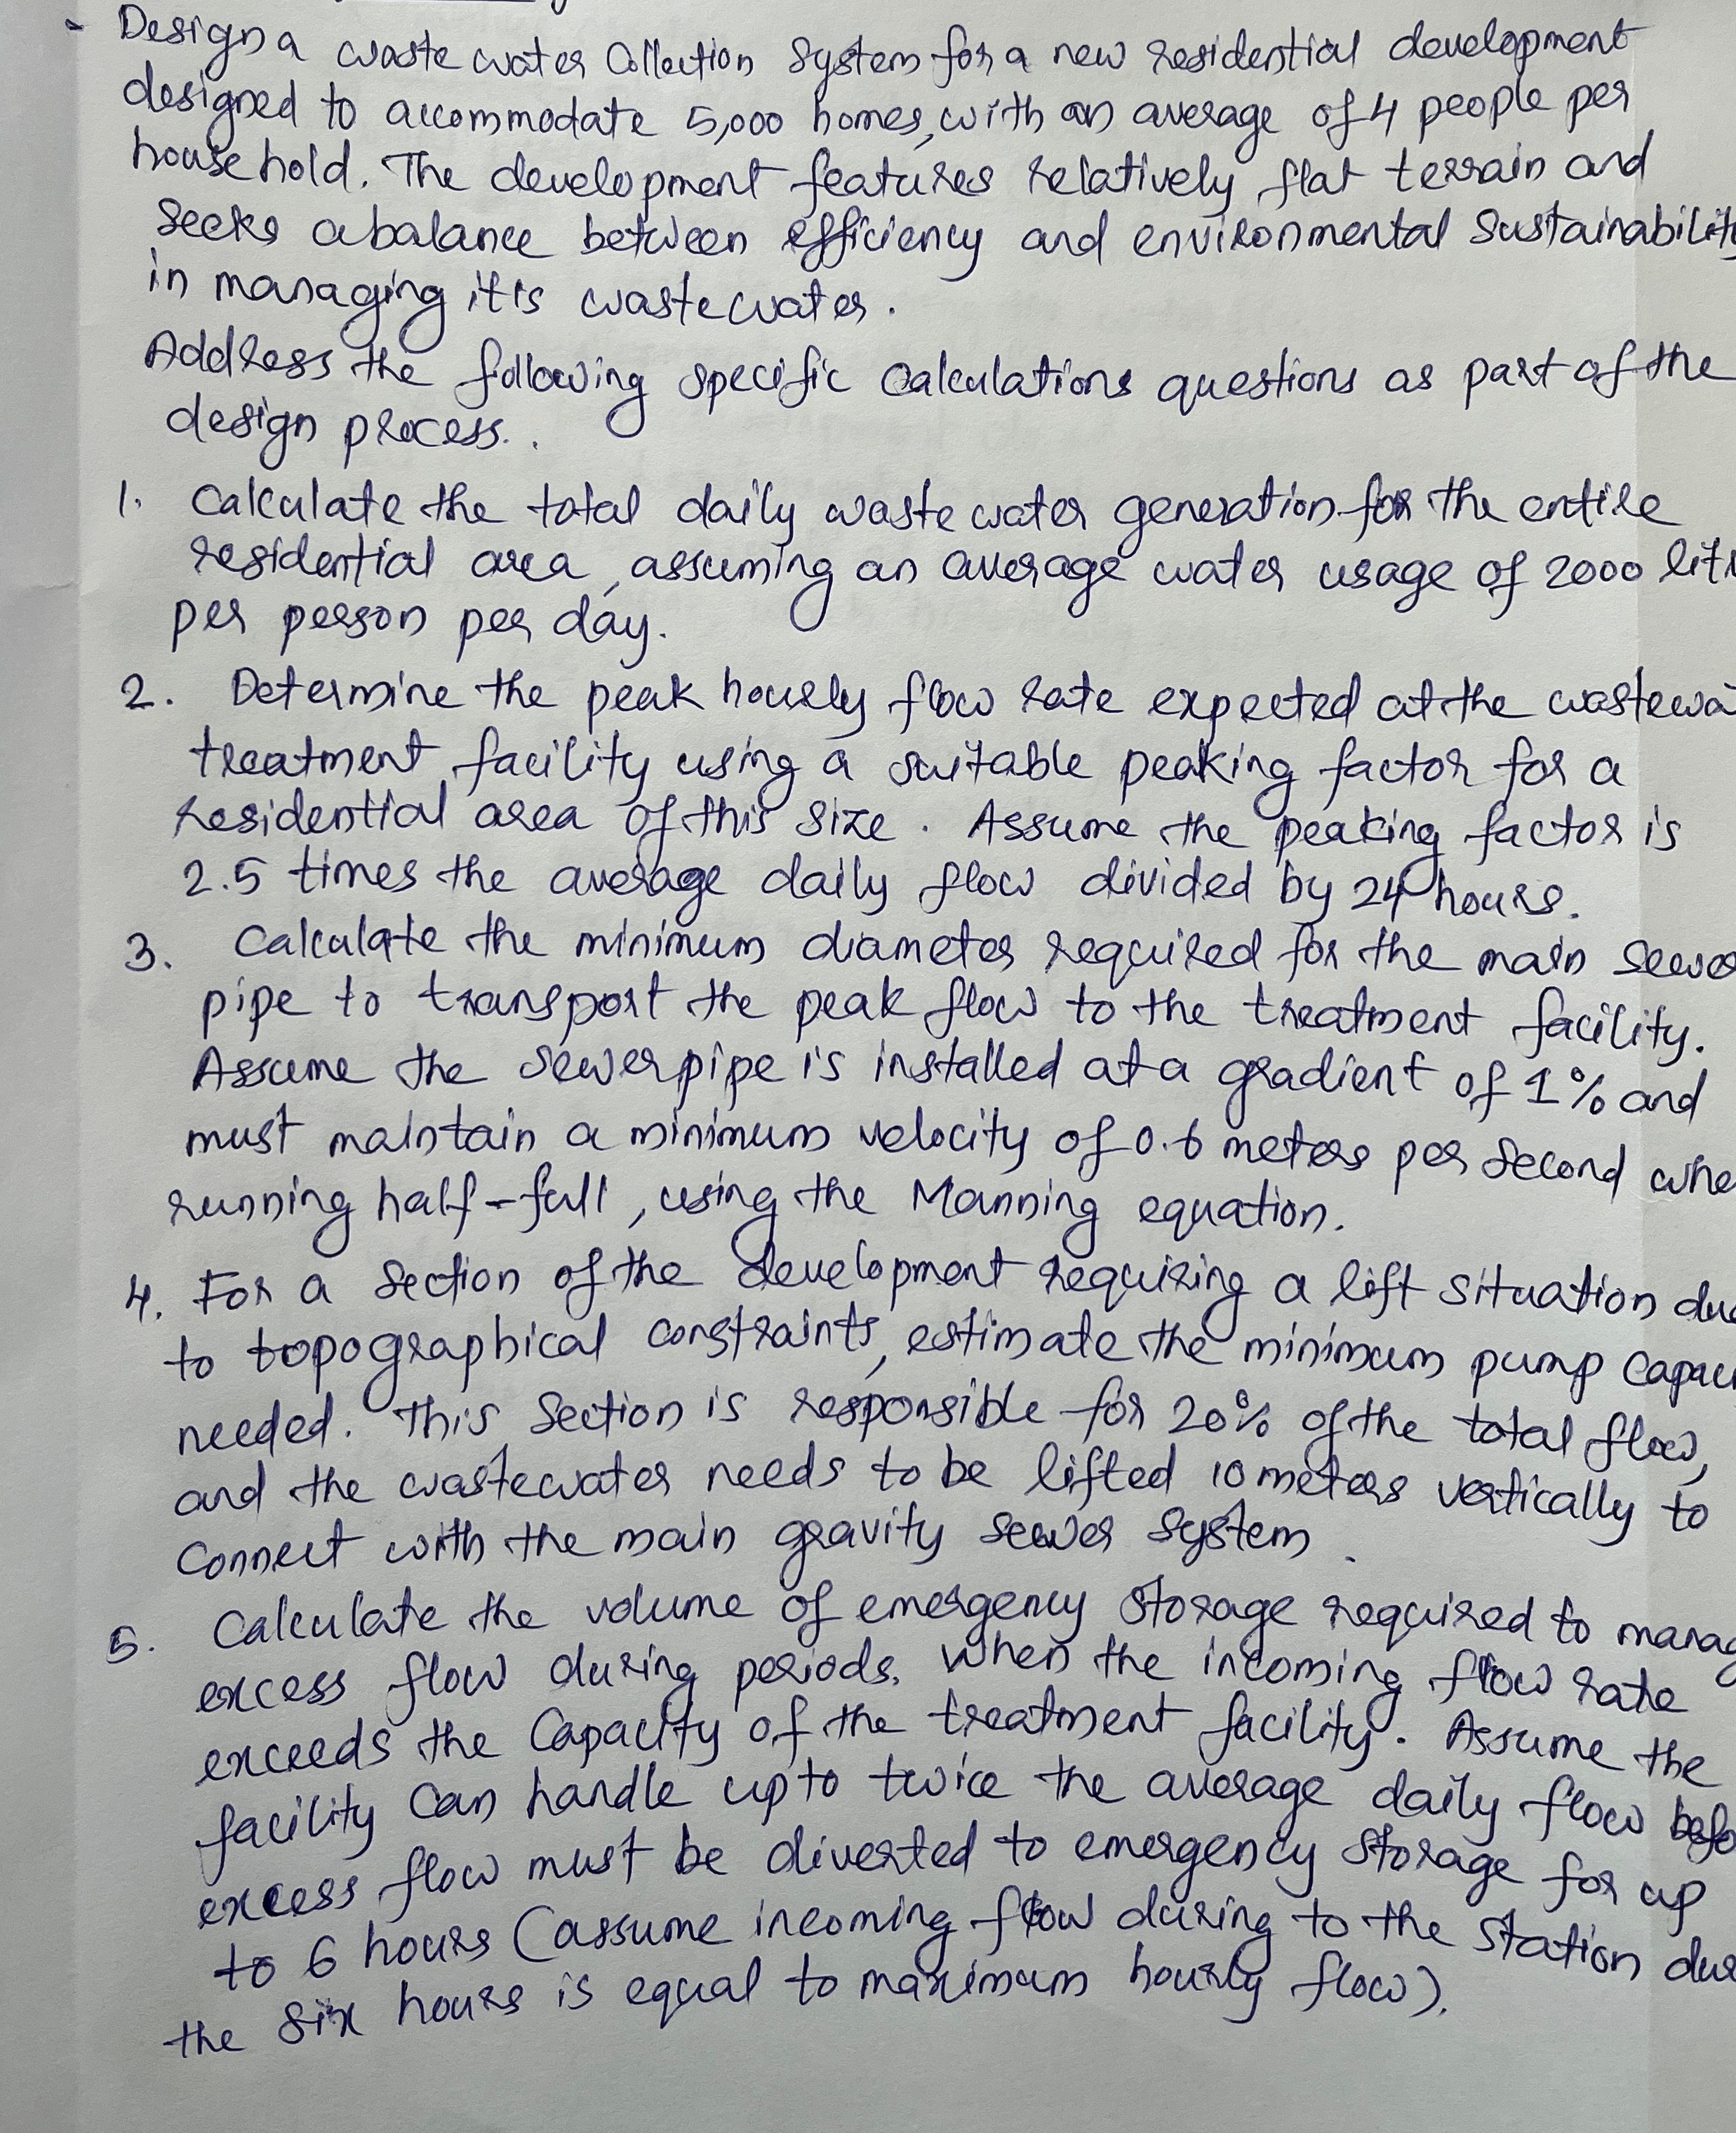 - Design a waste water Collection System for a new residential development
designed to accommodate 5,000 homes, with an average of 4 people per
household. The development features relatively flat terrain and
seeks a balance between efficiency and environmental Sustainabilit
in managing it's wastewater.
Address the following specific Calculations questions as part of the
design process..
1. Calculate the total daily waste water generation for the entire
residential area, assuming an average water usage of 2000 lit
per person per day.
2. Determine the peak hourly flow rate expected at the wastewa
treatment facility using a suitable peaking factor for a
residential area of this size. Assume the peaking factor is
2.5 times the average daily flow divided by 24 hours.
3. Calculate the minimum diameter required for the main sewe
pipe to transport the peak flow to the treatment facility.
Assume the sewer pipe is installed at a gradient of 1% and
must maintain a minimum velocity of 0.6 meters per second whe
running half-full, using the Manning equation.
4. For a section of the development requiring a lift situation du
to topographical constraints, estimate the minimum pump capac
needed. This Section is responsible for 20% of the total flow,
and the wastewater needs to be lifted 10 meters vertically to
Connect with the main gravity sewer system.
5. Calculate the volume of emergency Storage required to manag
excess flow during periods. When the incoming flow rate
exceeds the Capacity of the treatment facility. Assume the
facility can handle up to twice the average daily flow befo
excess flow must be diverted to emergency storage for up
to 6 hours (assume incoming flow during to the station du
the six hours is equal to maximum hourly flow).